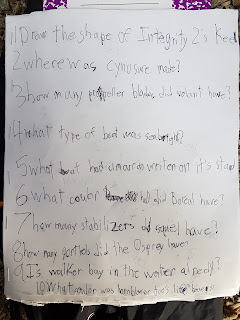 1 Draw the shape of Integrity 2's keel
2 where was cynosure made?
3 how many propeller blades did volant have?
4 what type of boat was seabright?
5 what had written on it's
6 what color hull did Boreal have?
7 how many stabilizers did have?
8 how many portholes did the Osprey have?
9 Is walker bay in the water alredy?
10 What color was